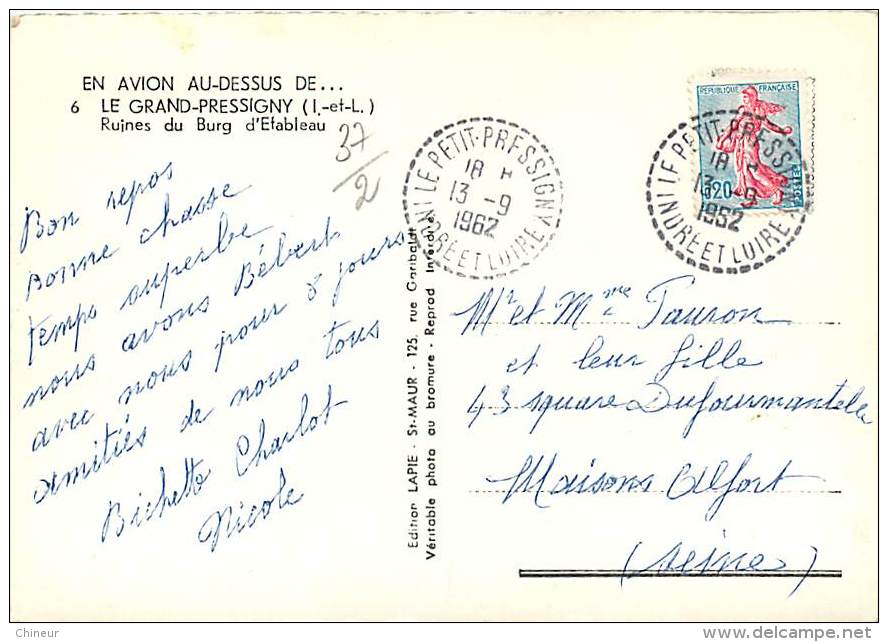 EN AVION AU-DESSUS DE...
6 LE GRAND-PRESSIGNY (I.-et-L.)
Ruines du Burg d'Etableau
37/2
Bon repos
Bonne chasse
temps superbe
nous avons Bébert
avec nous pour 8 jours
amitiés de nous tous
Bichette Charlot
Nicole
Edition LAPIE - St-MAUR - 125, rue Garibaldi
Véritable photo au bromure - Reprod Interdite
LE PETIT-PRESSIGNY
18 H
13 -9
1962
INDRE ET LOIRE
REPUBLIQUE FRANÇAISE
0,20
POSTES
LE PETIT-PRESSIGNY
18 H
13 -9
1962
INDRE ET LOIRE
Mr et Mme Pauron
et leur fille
43 square Dufourmantelle
Maisons Alfort
(Seine)
Chineur
delcampe.net